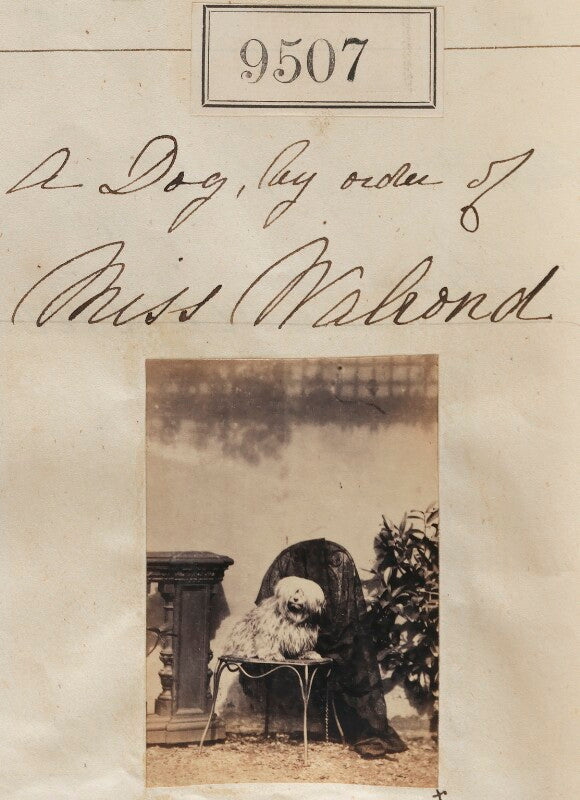 9507
A Dog, by order of
Miss Walrond